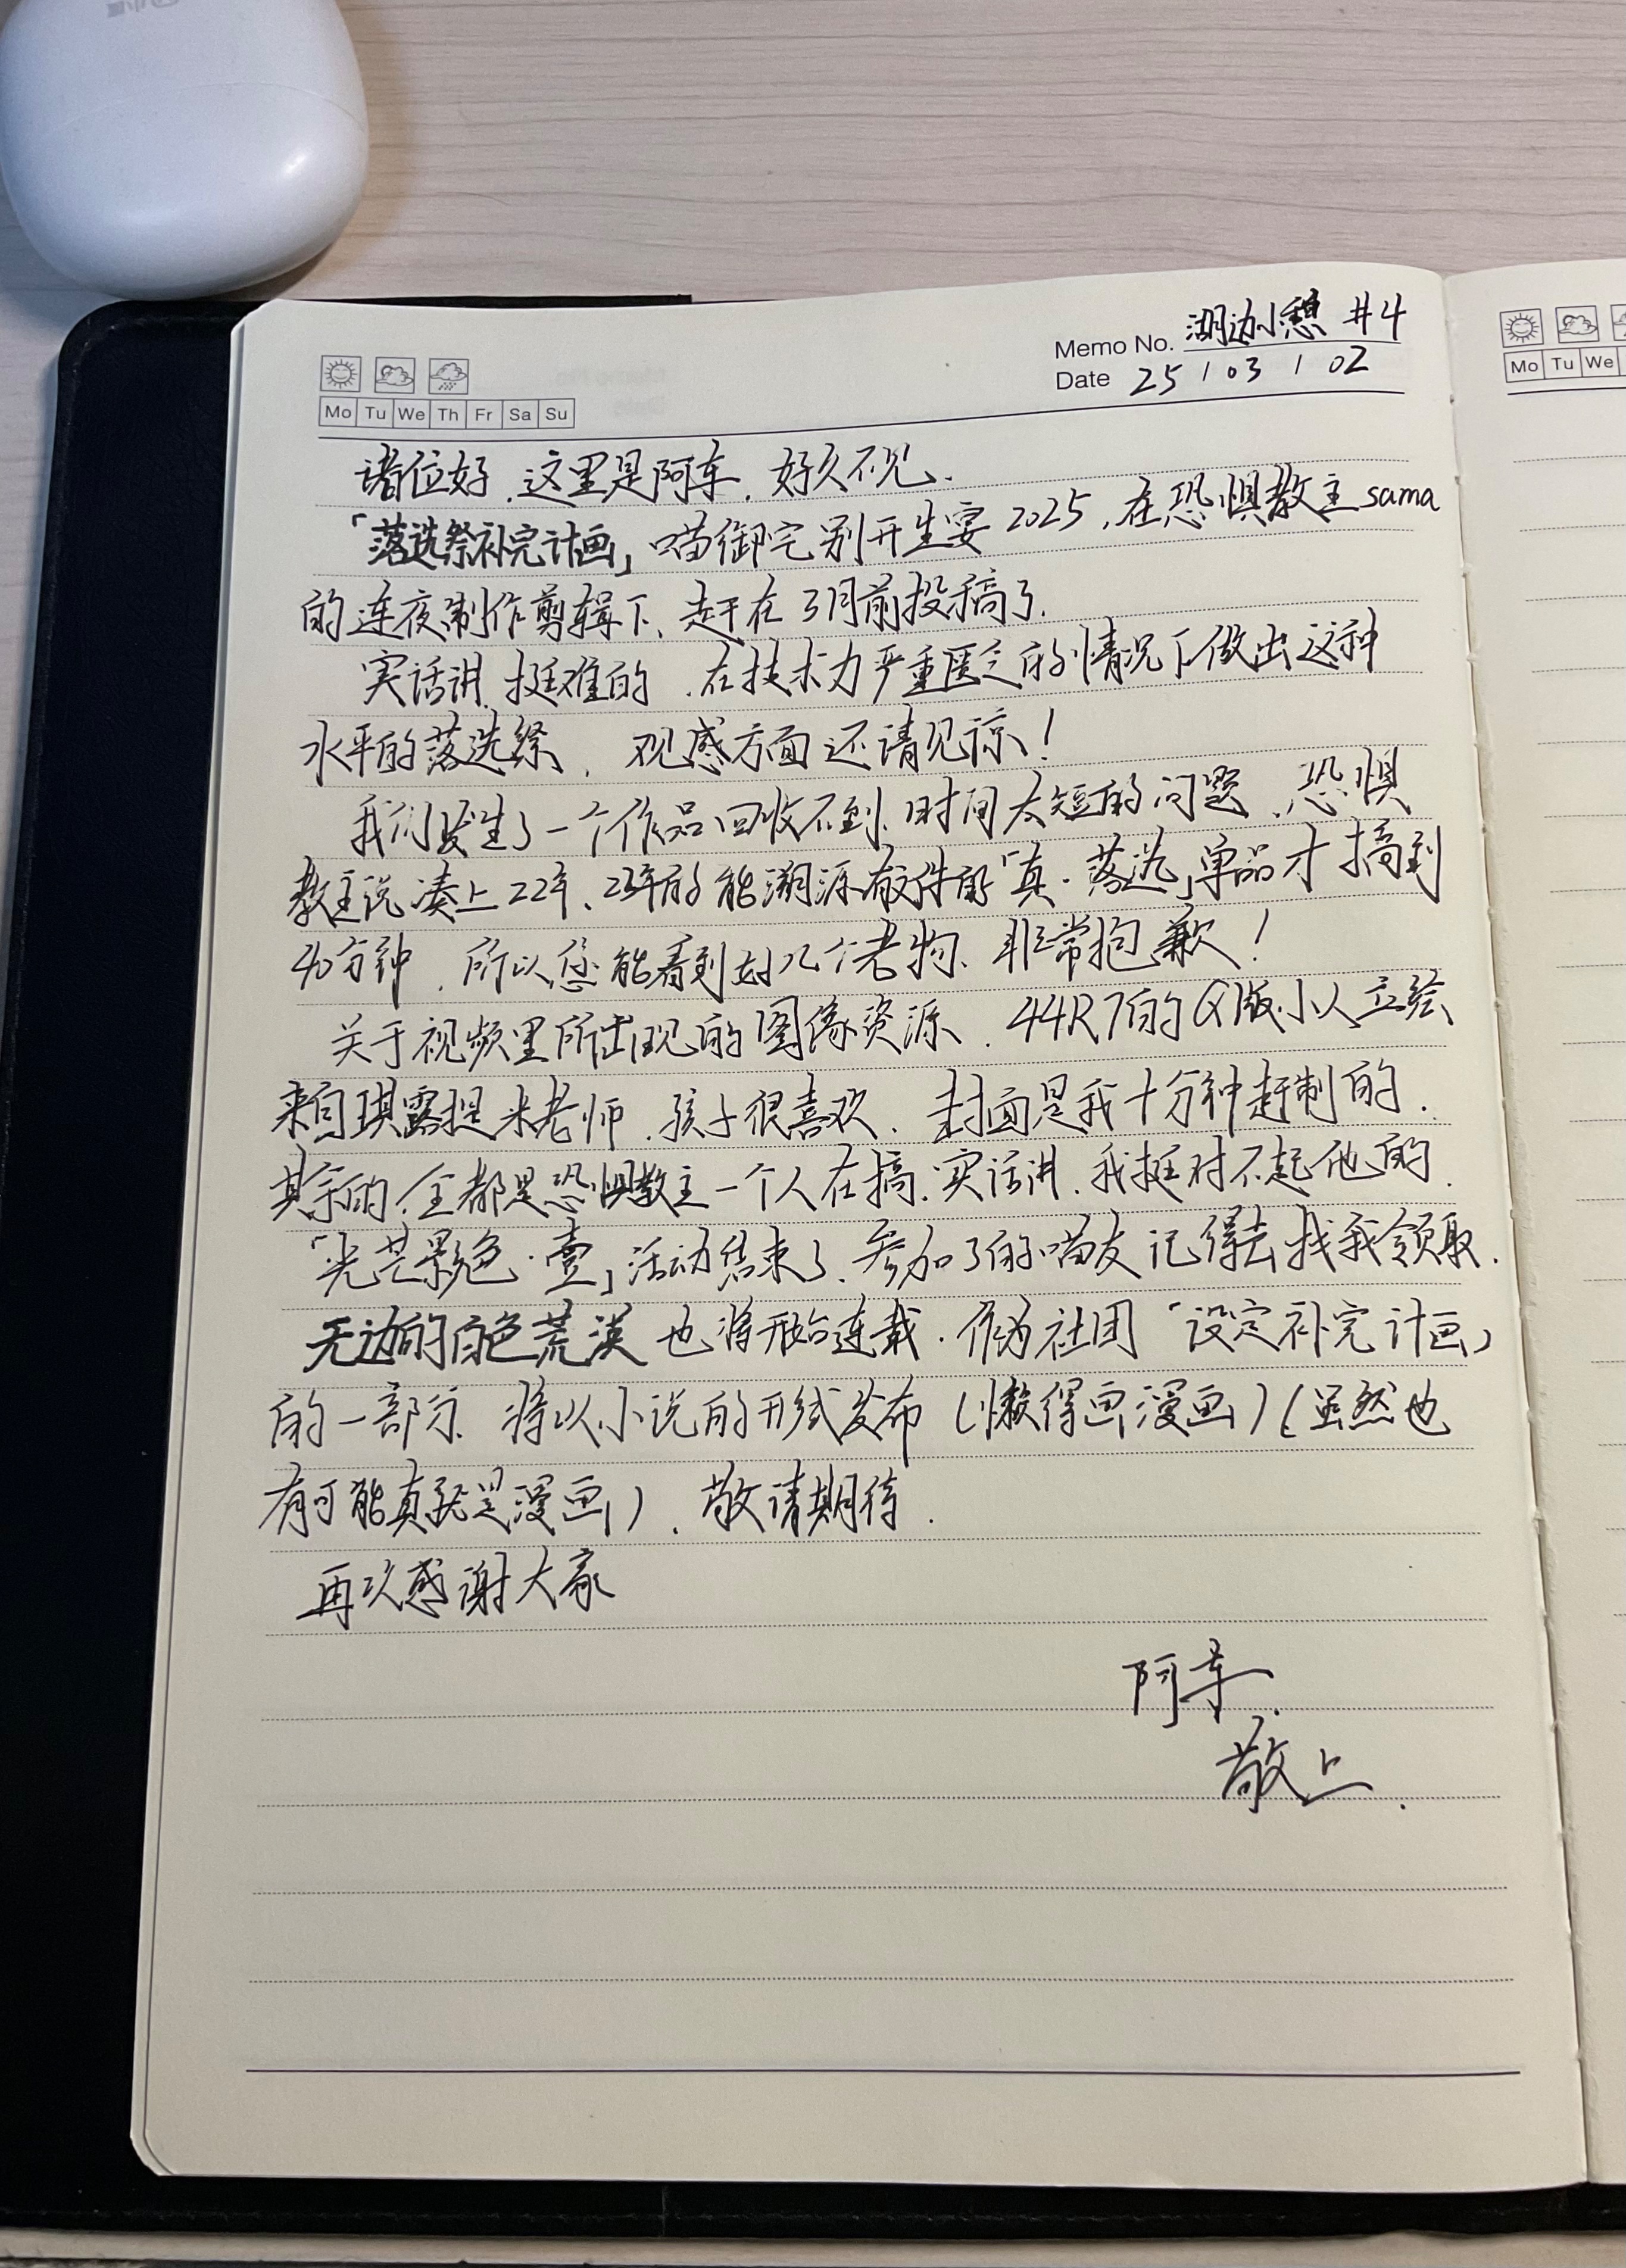 Memo No. 湖边小憩 #4
Date 25 / 03 / 02
Mo Tu We Th Fr Sa Su
Mo Tu We
诸位好，这里是阿车，好久不见。
「落选祭补完计画」喵御宅别开生宴2025，在恐惧教主sama
的连夜制作剪辑下、赶在3月前投稿了。
实话讲，挺难的，在技术力严重匮乏的情况下做出这种
水平的落选祭，观感方面还请见谅！
我们发生了一个作品回收不到、时间太短的问题，恐惧
教主说凑上22年、23年的能溯源散件的「真·落选」单品才搞到
40分钟，所以您能看到好几个老物、非常抱歉！
关于视频里所出现的图像资源，44R7的Q版小人立绘
来自琪露提米老师，孩子很喜欢、封面是我十分钟赶制的．
其余的，全都是恐惧教主一个人在搞．实话讲、我挺对不起他的．
「光芒影色·壹」活动结束了、参加了的喵友记得去找我领取．
无边的白色荒漠也将开始连载．作为社团「设定补完计画」
的一部分、将以小说的形式发布（懒得画漫画）（虽然也
有可能真就是漫画），敬请期待．
再次感谢大家
阿车．
敬上．